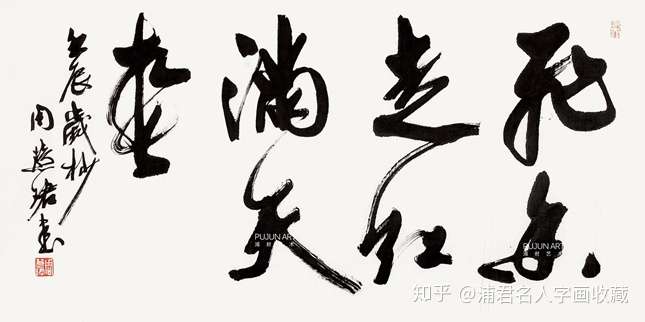 飛香
走紅
滿天
春
壬辰歲杪
周慧珺書
PUJUN ART
浦君艺术
PUJUN ART
浦君艺术
知乎 @浦君名人字画收藏